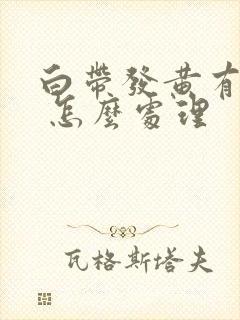 白帶發黃有
怎麼處理
瓦格斯塔夫